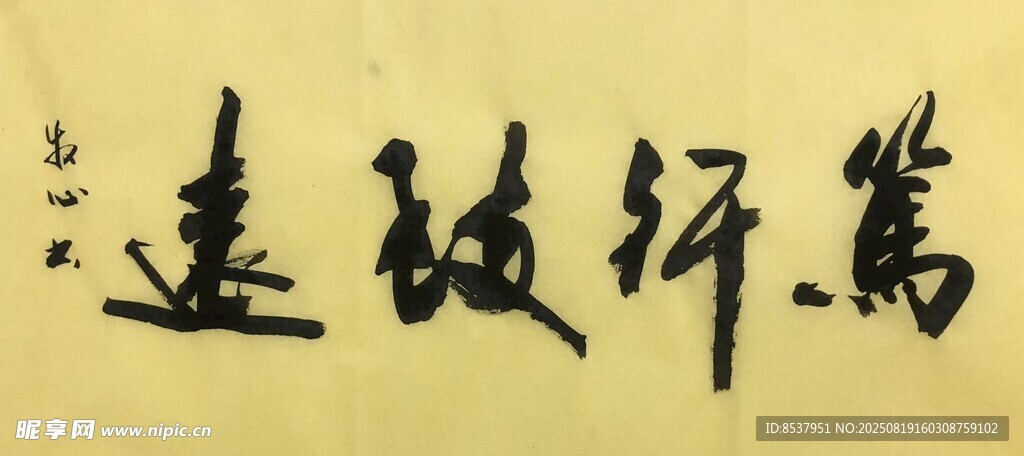 篤行致遠
牧心书
昵享网 www.nipic.cn
ID:8537951 NO:20250819160308759102